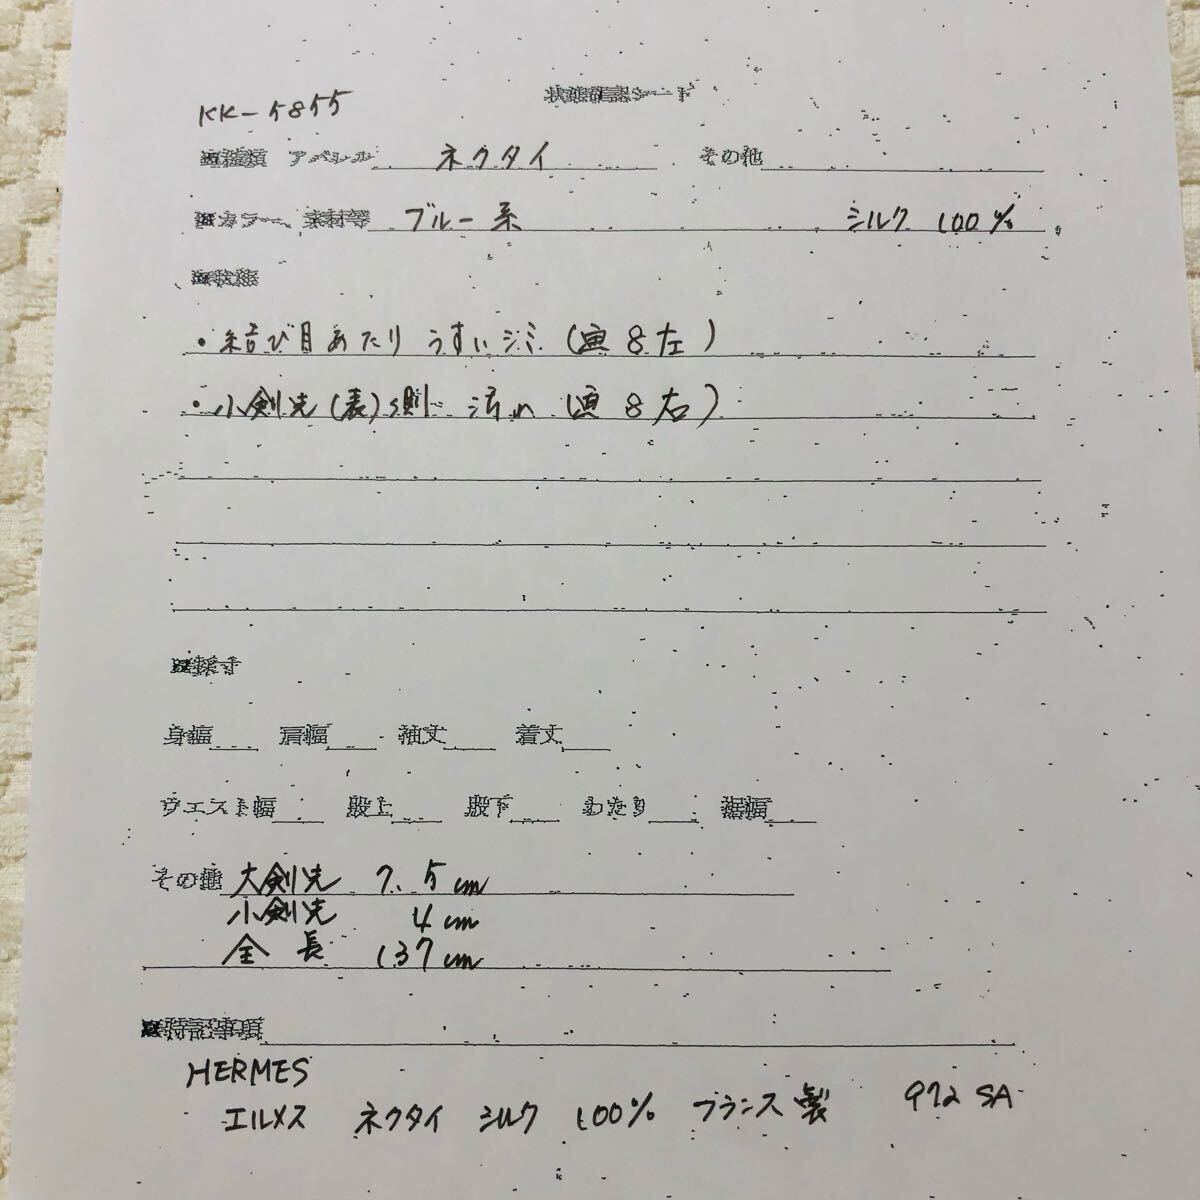 KK-5855
状態確認シート
■種類 アパレル ネクタイ その他
■カラー、素材等 ブルー系 シルク 100%
■状態
・結び目あたり うすいシミ (画8左)
・小剣先(表)側 汚れ (画8右)
■採寸
身幅 肩幅 袖丈 着丈
ウエスト幅 股上 股下 わたり 裾幅
その他 大剣先 7.5cm
小剣先 4cm
全長 137cm
■特記事項
HERMES
エルメス ネクタイ シルク 100% フランス製 972 SA